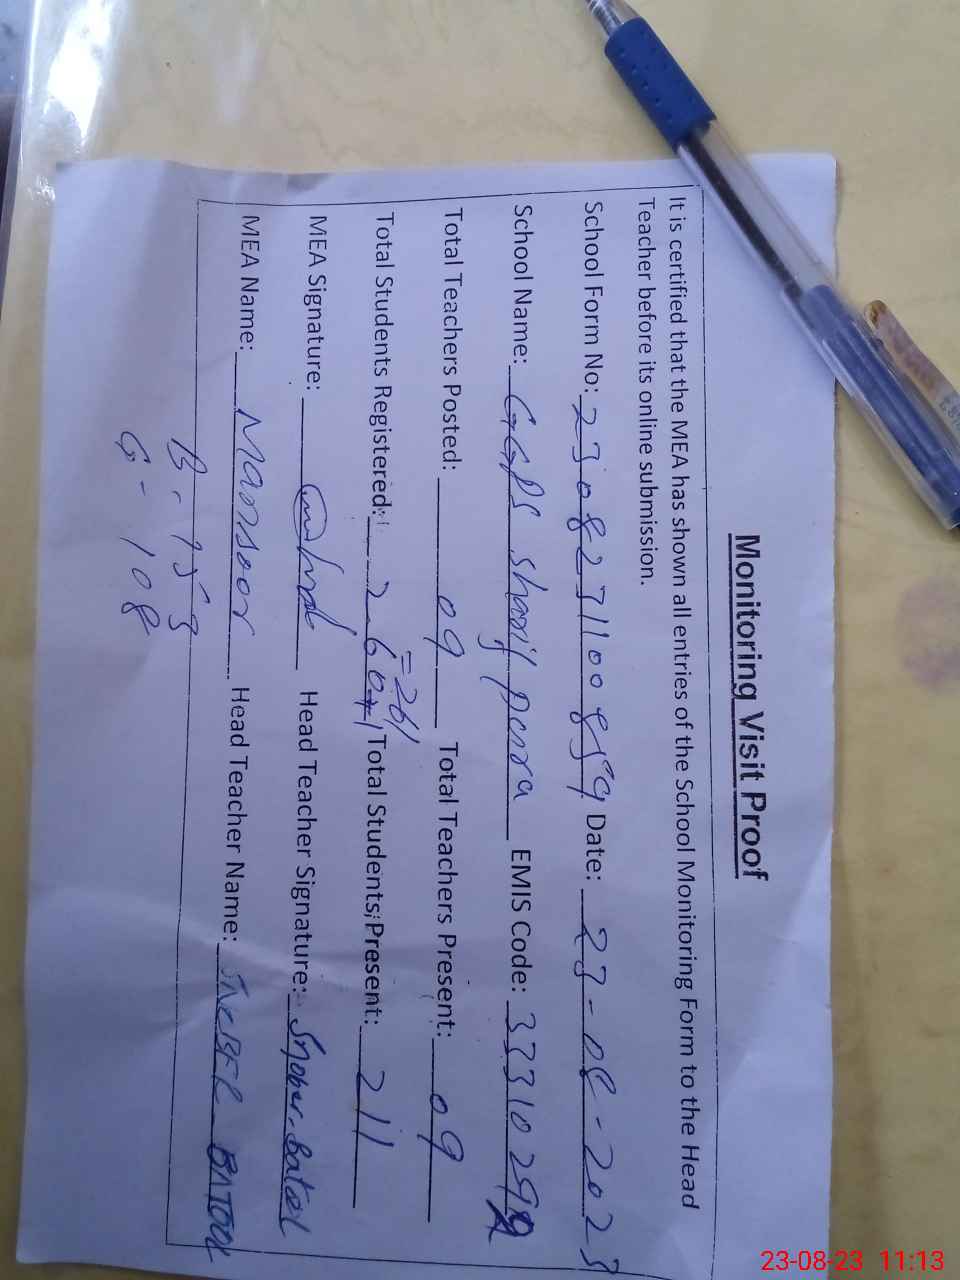 Monitoring Visit Proof
It is certified that the MEA has shown all entries of the School Monitoring Form to the Head
Teacher before its online submission.
School Form No: 2308231100859 Date: 23-08-2023
School Name: GGPS sharif pura EMIS Code: 3331029
Total Teachers Posted: 09 Total Teachers Present: 09
= 261
Total Students Registered: 260+1 Total Students Present: 211
MEA Signature: Head Teacher Signature: Snober Batool
MEA Name: Mansoor Head Teacher Name: SNOBER BATOOL
B - 153
G - 108
23-08-23 11:13